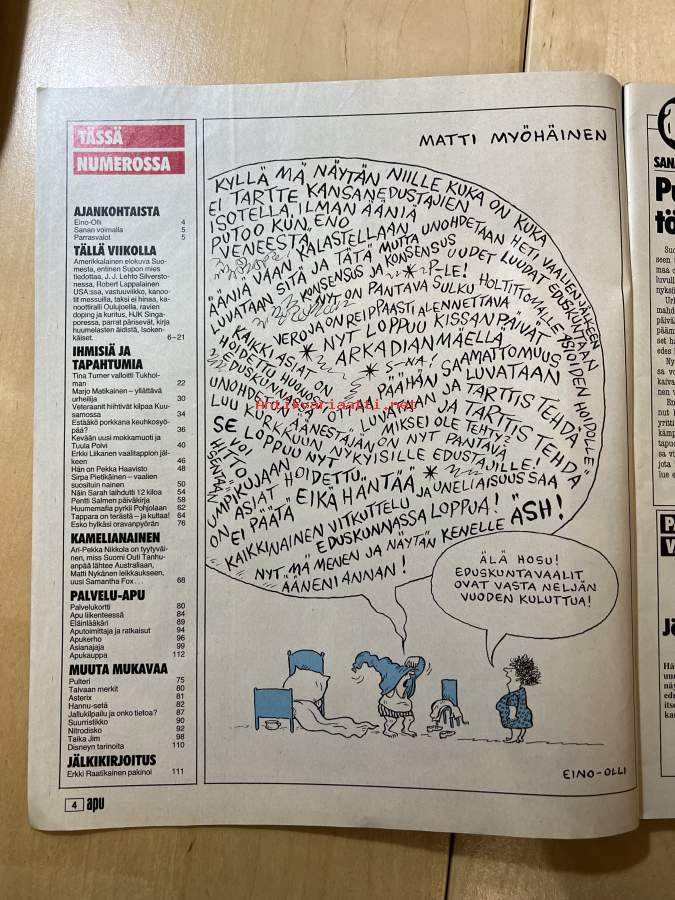 TÄSSÄ
NUMEROSSA
AJANKOHTAISTA
Eino-Olli 4
Sanan voimalla 5
Parrasvalot 5
TÄLLÄ VIIKOLLA
Amerikkalainen elokuva Suo-
mesta, entinen Supon mies
tiedottaa, J. J. Lehto Silversto-
nessa, Robert Lappalainen
USA:ssa, vastuuviikko, kanoo-
tit messuilla, taksi ei hinaa, ka-
noottiralli Oulujoella, ravien
doping ja kuritus, HJK Singa-
poressa, parrat pärisevät, kirja
huumelasten äidistä, Isoken-
käiset. 6–21
IHMISIÄ JA
TAPAHTUMIA
Tina Turner valloitti Tukhol-
man 22
Marjo Matikainen – yllättävä
urheilija 30
Veteraanit hiihtivät kilpaa Kuu-
samossa 34
Estääkö porkkana keuhkosyö-
pää? 36
Kevään uusi mokkamuoti ja
Tuula Polvi 40
Erkki Liikanen vaalitappion jäl-
keen 46
Hän on Pekka Haavisto 48
Sirpa Pietikäinen – vaalien
suosituin nainen 50
Näin Sarah laihdutti 12 kiloa 54
Pentti Salmen päiväkirja 58
Huumemafia pyrkii Pohjolaan 62
Tappara on terästä – ja kultaa! 64
Esko hylkäsi oravanpyörän 76
KAMELIANAINEN
Ari-Pekka Nikkola on tyytyväi-
nen, miss Suomi Outi Tanhu-
anpää lähtee Australiaan,
Matti Nykänen leikkaukseen,
uusi Samantha Fox... 68
PALVELU-APU
Palvelukortti 80
Apu liikenteessä 84
Eläinlääkäri 89
Aputoimittaja ja ratkaisut 94
Apukerho 96
Asianajaja 99
Apukauppa 112
MUUTA MUKAVAA
Pulteri 75
Taivaan merkit 80
Asterix 81
Hannu-setä 82
Jallukilpailu ja onko tietoa? 87
Suurristikko 90
Nitrodisko 92
Taika Jim 98
Disneyn tarinoita 110
JÄLKIKIRJOITUS
Erkki Raatikainen pakinoi 111
4 apu
MATTI MYÖHÄINEN
KYLLÄ MÄ NÄYTÄN NIILLE KUKA ON KUKA
EI TARTTE KANSANEDUSTAJIEN
ISOTELLA, ILMAN ÄÄNIÄ
PUTOO KUN ENO
VENEESTÄ
ÄÄNIÄ VAAN KALASTELLAAN
LUVATAAN SITÄ JA TÄTÄ MUTTA UNOHDETAAN HETI VAALIEN JÄLKEEN
KONSENSUS JA KONSENSUS UUDET LUUDAT EDUSKUNTAAN
P-LE!
NYT ON PANTAVA SULKU HOLTITTOMALLE ASIOIDEN HOIDOLLE
VEROJA ON REIPPAASTI ALENNETTAVA
NYT LOPPUU KISSANPÄIVÄT
ARKADIANMÄELLÄ
KAIKKI ASIAT ON
HOIDETTU HUONOSTI
S-NA!
PÄÄHÄN SAAMATTOMUUS
LUVATAAN
LUVATAAN JA TARTTIS TEHDÄ
JA TARTTIS TEHDÄ
MIKSEI OLE TEHTY?
ÄÄNESTÄJÄN ON NYT PANTAVA
LUU KURKKUUN NYKYISILLE EDUSTAJILLE!
SE LOPPUU NYT
EIKÄ HÄNTÄÄ
JA UNELIAISUUS SAA
ON ASIAT HOIDETTU
EI PÄÄTÄ
KAIKKINAINEN VITKUTTELU
EDUSKUNNASSA LOPPUA! ÄSH!
NYT MÄ MENEN JA NÄYTÄN KENELLE
ÄÄNENI ANNAN!
ÄLÄ HOSU!
EDUSKUNTAVAALIT
OVAT VASTA NELJÄN
VUODEN KULUTTUA!
EINO-OLLI
Antikvariaatti.net
SAN